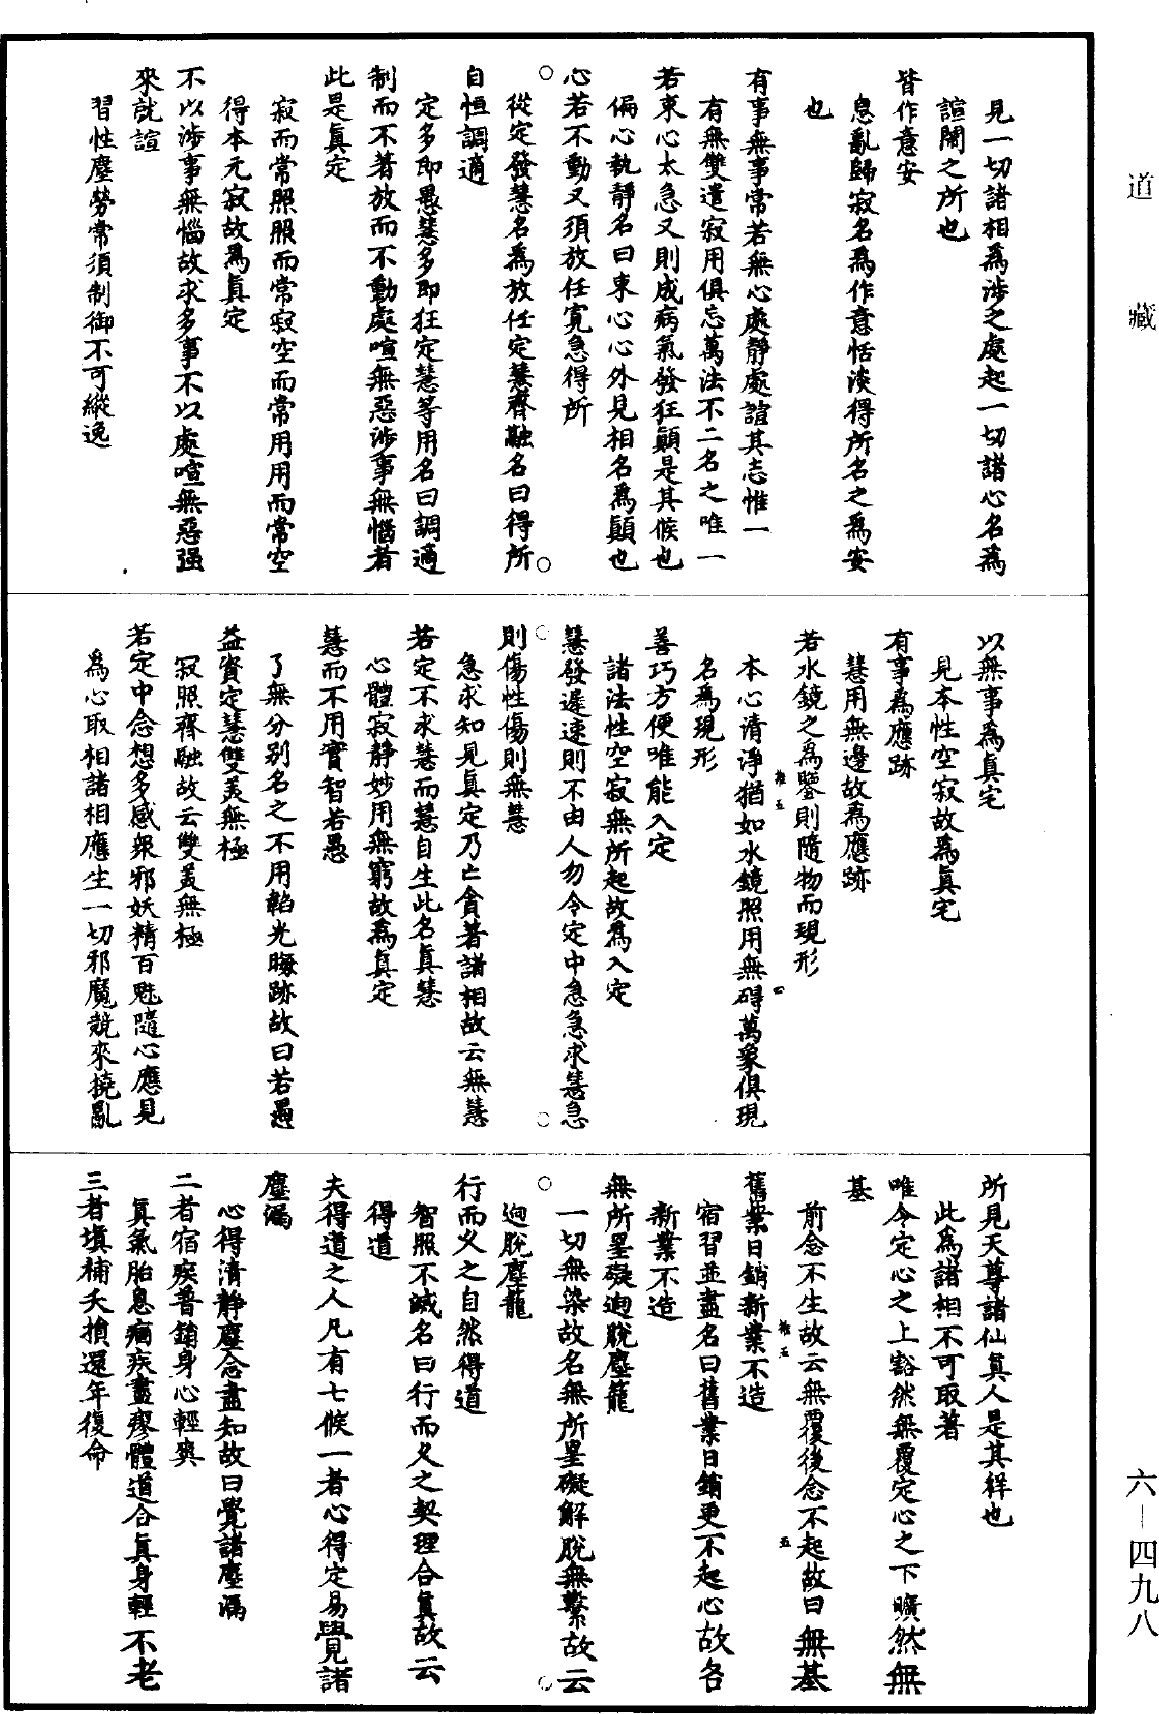 道藏
見一切諸相爲涉之處起一切諸心名爲
諠鬧之所也
皆作意安
息亂歸寂名爲作意恬淡得所名之爲安
也
有事無事常若無心處靜處諠其志惟一
有無雙遣寂用俱忘萬法不二名之唯一
若束心太急又則成病氣發狂顚是其候也
偏心執靜名曰束心心外見相名爲顚也
心若不動又須放任寬急得所
從定發慧名爲放任定慧齊融名曰得所
自恒調適
定多即愚慧多即狂定慧等用名曰調適
制而不著放而不動處喧無惡涉事無惱者
此是眞定
寂而常照照而常寂空而常用用而常空
得本元寂故爲眞定
不以涉事無惱故求多事不以處喧無惡强
來就諠
習性塵勞常須制御不可縱逸
以無事爲眞宅
見本性空寂故爲眞宅
有事爲應跡
慧用無邊故爲應跡
若水鏡之爲鑒則隨物而現形
本心清淨猶如水鏡照用無碍萬象俱現
名爲現形
善巧方便唯能入定
諸法性空寂無所起故爲入定
慧發遲速則不由人勿令定中急急求慧急
則傷性傷則無慧
急求知見眞定乃亡貪著諸相故云無慧
若定不求慧而慧自生此名眞慧
心體寂靜妙用無窮故爲眞定
慧而不用實智若愚
了無分别名之不用韜光晦跡故曰若愚
益資定慧雙美無極
寂照齊融故云雙美無極
若定中念想多感衆邪妖精百魅隨心應見
爲心取相諸相應生一切邪魔競來撓亂
所見天尊諸仙眞人是其祥也
此爲諸相不可取著
唯令定心之上豁然無覆定心之下曠然無
基
前念不生故云無覆後念不起故曰無基
舊業日銷新業不造
宿習並盡名曰舊業日銷更不起心故名
新業不造
無所罣礙迥脫塵籠
一切無染故名無所罣礙解脫無繫故云
迥脫塵籠
行而乆之自然得道
智照不滅名曰行而乆之契理合眞故云
得道
夫得道之人凡有七候一者心得定易覺諸
塵漏
心得清靜塵念盡知故曰覺諸塵漏
二者宿疾普銷身心輕爽
眞氣胎息痼疾盡瘳體道合眞身輕不老
三者塡補夭損還年復命
六—四九八